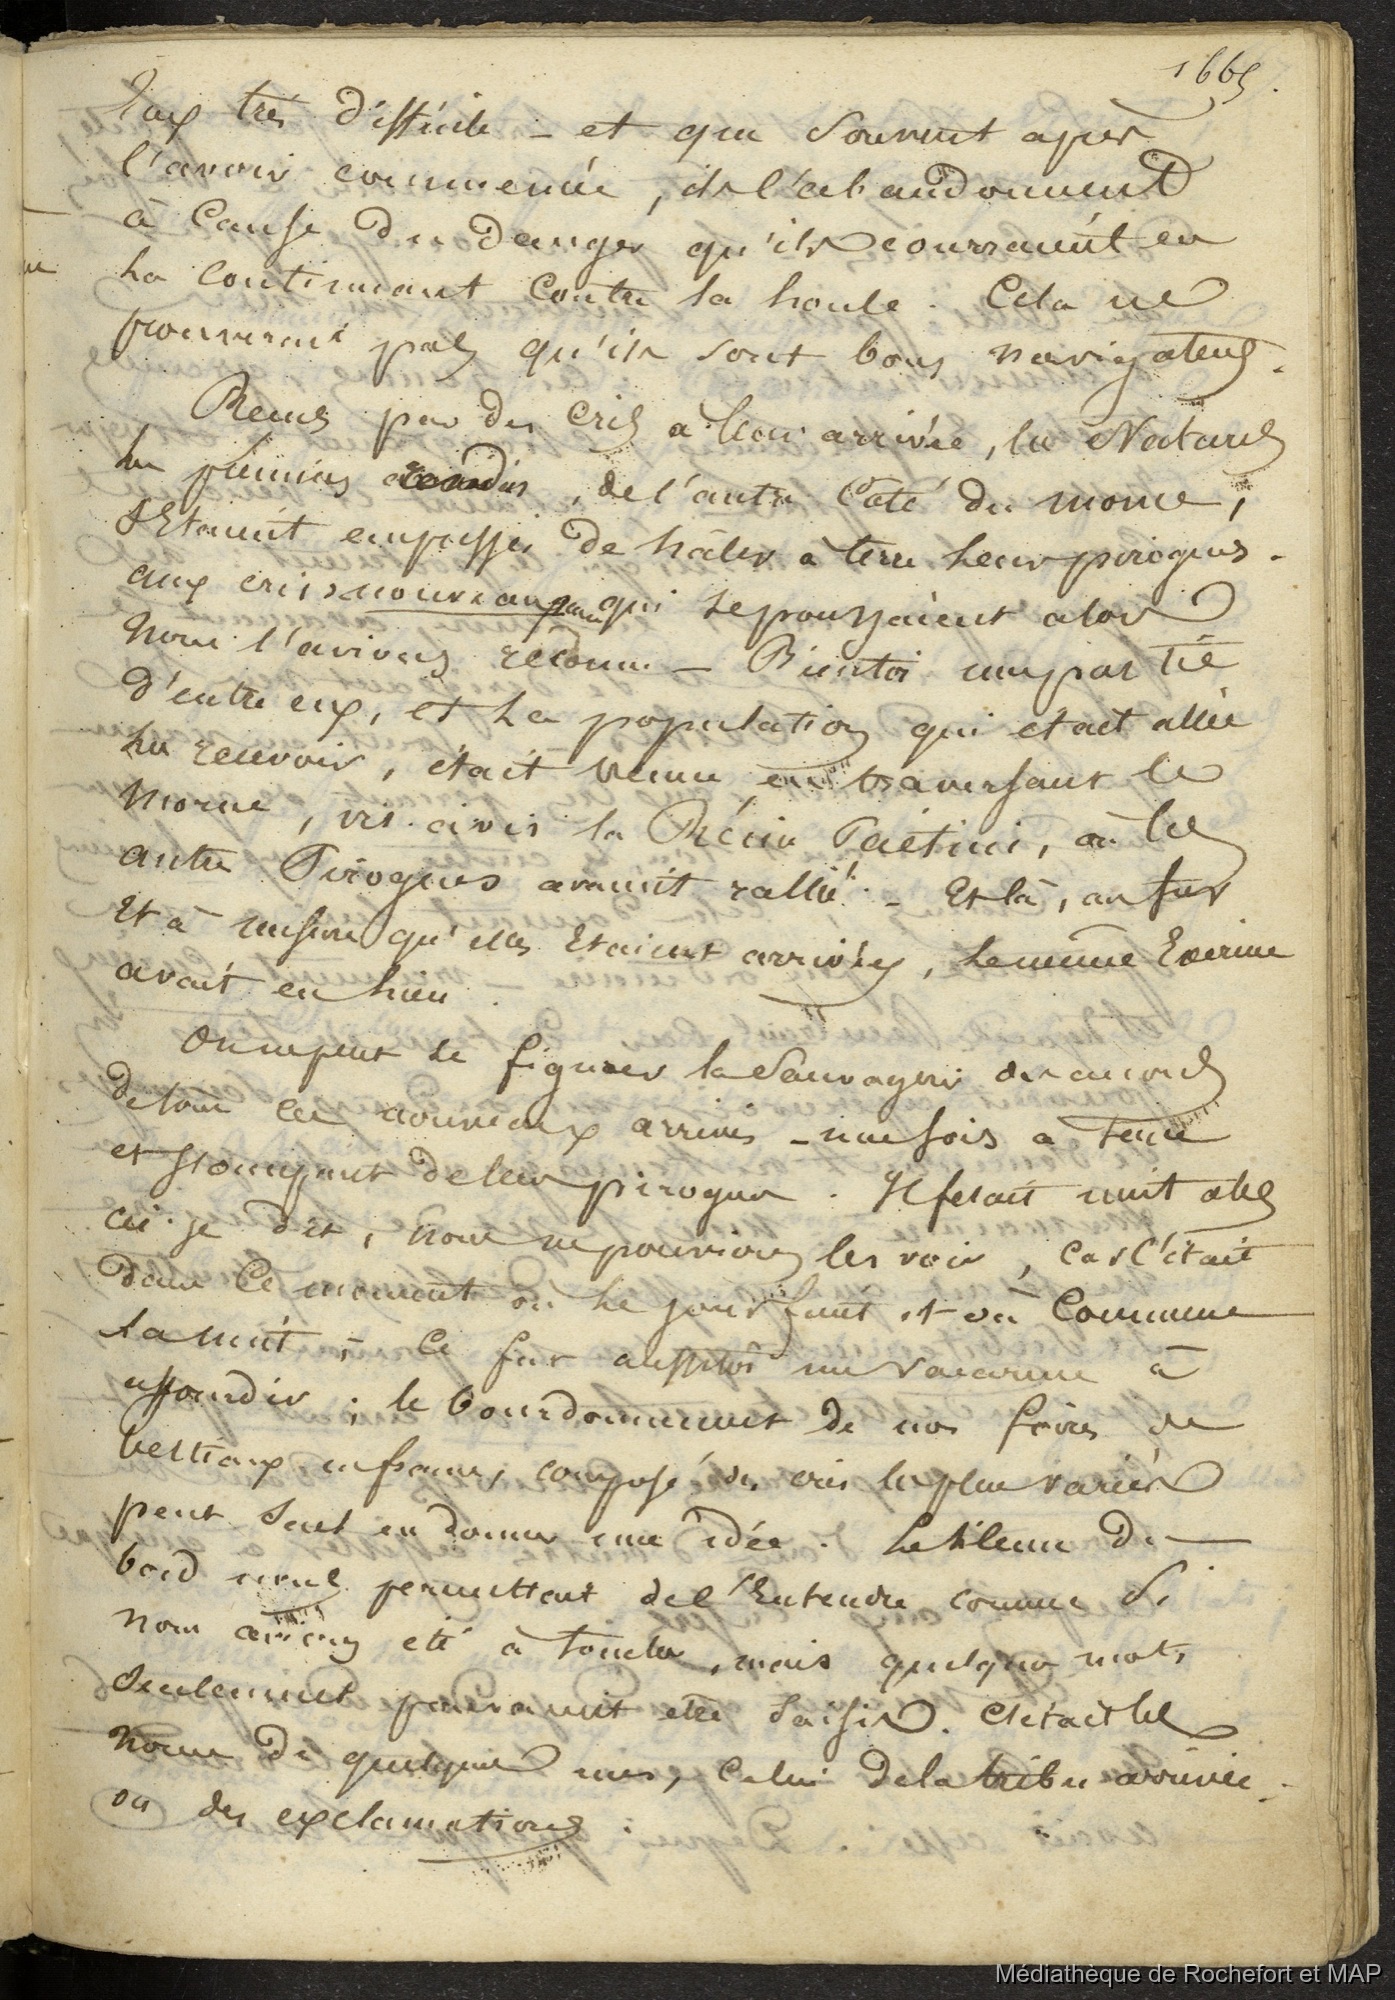 1665.
Eux très difficile - et que souvent après
l'avoir commencée, ils l'abandonnent
à Cause du danger qu'ils courraient en
la Continuant Contre la houle. Cela ne
prouverait pas qu'ils sont bons navigateurs.
Reçus par des Cris à leur arrivée, les Naturels
les premiers rendus, de l'autre Côté du morne,
s'Etaient empressés de hâler à terre leurs pirogues.
aux cris nouveaux qui se poussaient alors
Nous l'avions reconnu - Bientôt une partie
d'entre eux, et La population qui etait allée
les recevoir, était venue en traversant le
Morne, vis-à-vis la Récin Taetini, où les
autres Pirogues avaient rallié. - Et là, au fur
Et à mesure qu'elles Etaient arrivées, le même
avait eu lieu.
On ne peut se figurer la Sauvagerie des accords
de tous ces nouveaux arrivés - une fois à terre
et s'occupant de leurs pirogues. Il fesait nuit alors
ai-je dit, Nous ne pouvions les voir, Car C'était
dans Ce moment où le jour finit et où Commence
La nuit; Ce fut aussitôt un vacarme à
assourdir; le bourdonnement de nos foires de
bestiaux en france, composé des cris les plus variés
peut seul en donner une idée. Le silence du
bord nous permettait de l'Entendre comme si
nous avions été à toucher, mais quelques mots
Seulement pouvaient etre Saisis. C'était les
Noms de quelques uns, Celui de la tribu arrivée.
ou des exclamations :
Médiathèque de Rochefort et MAP